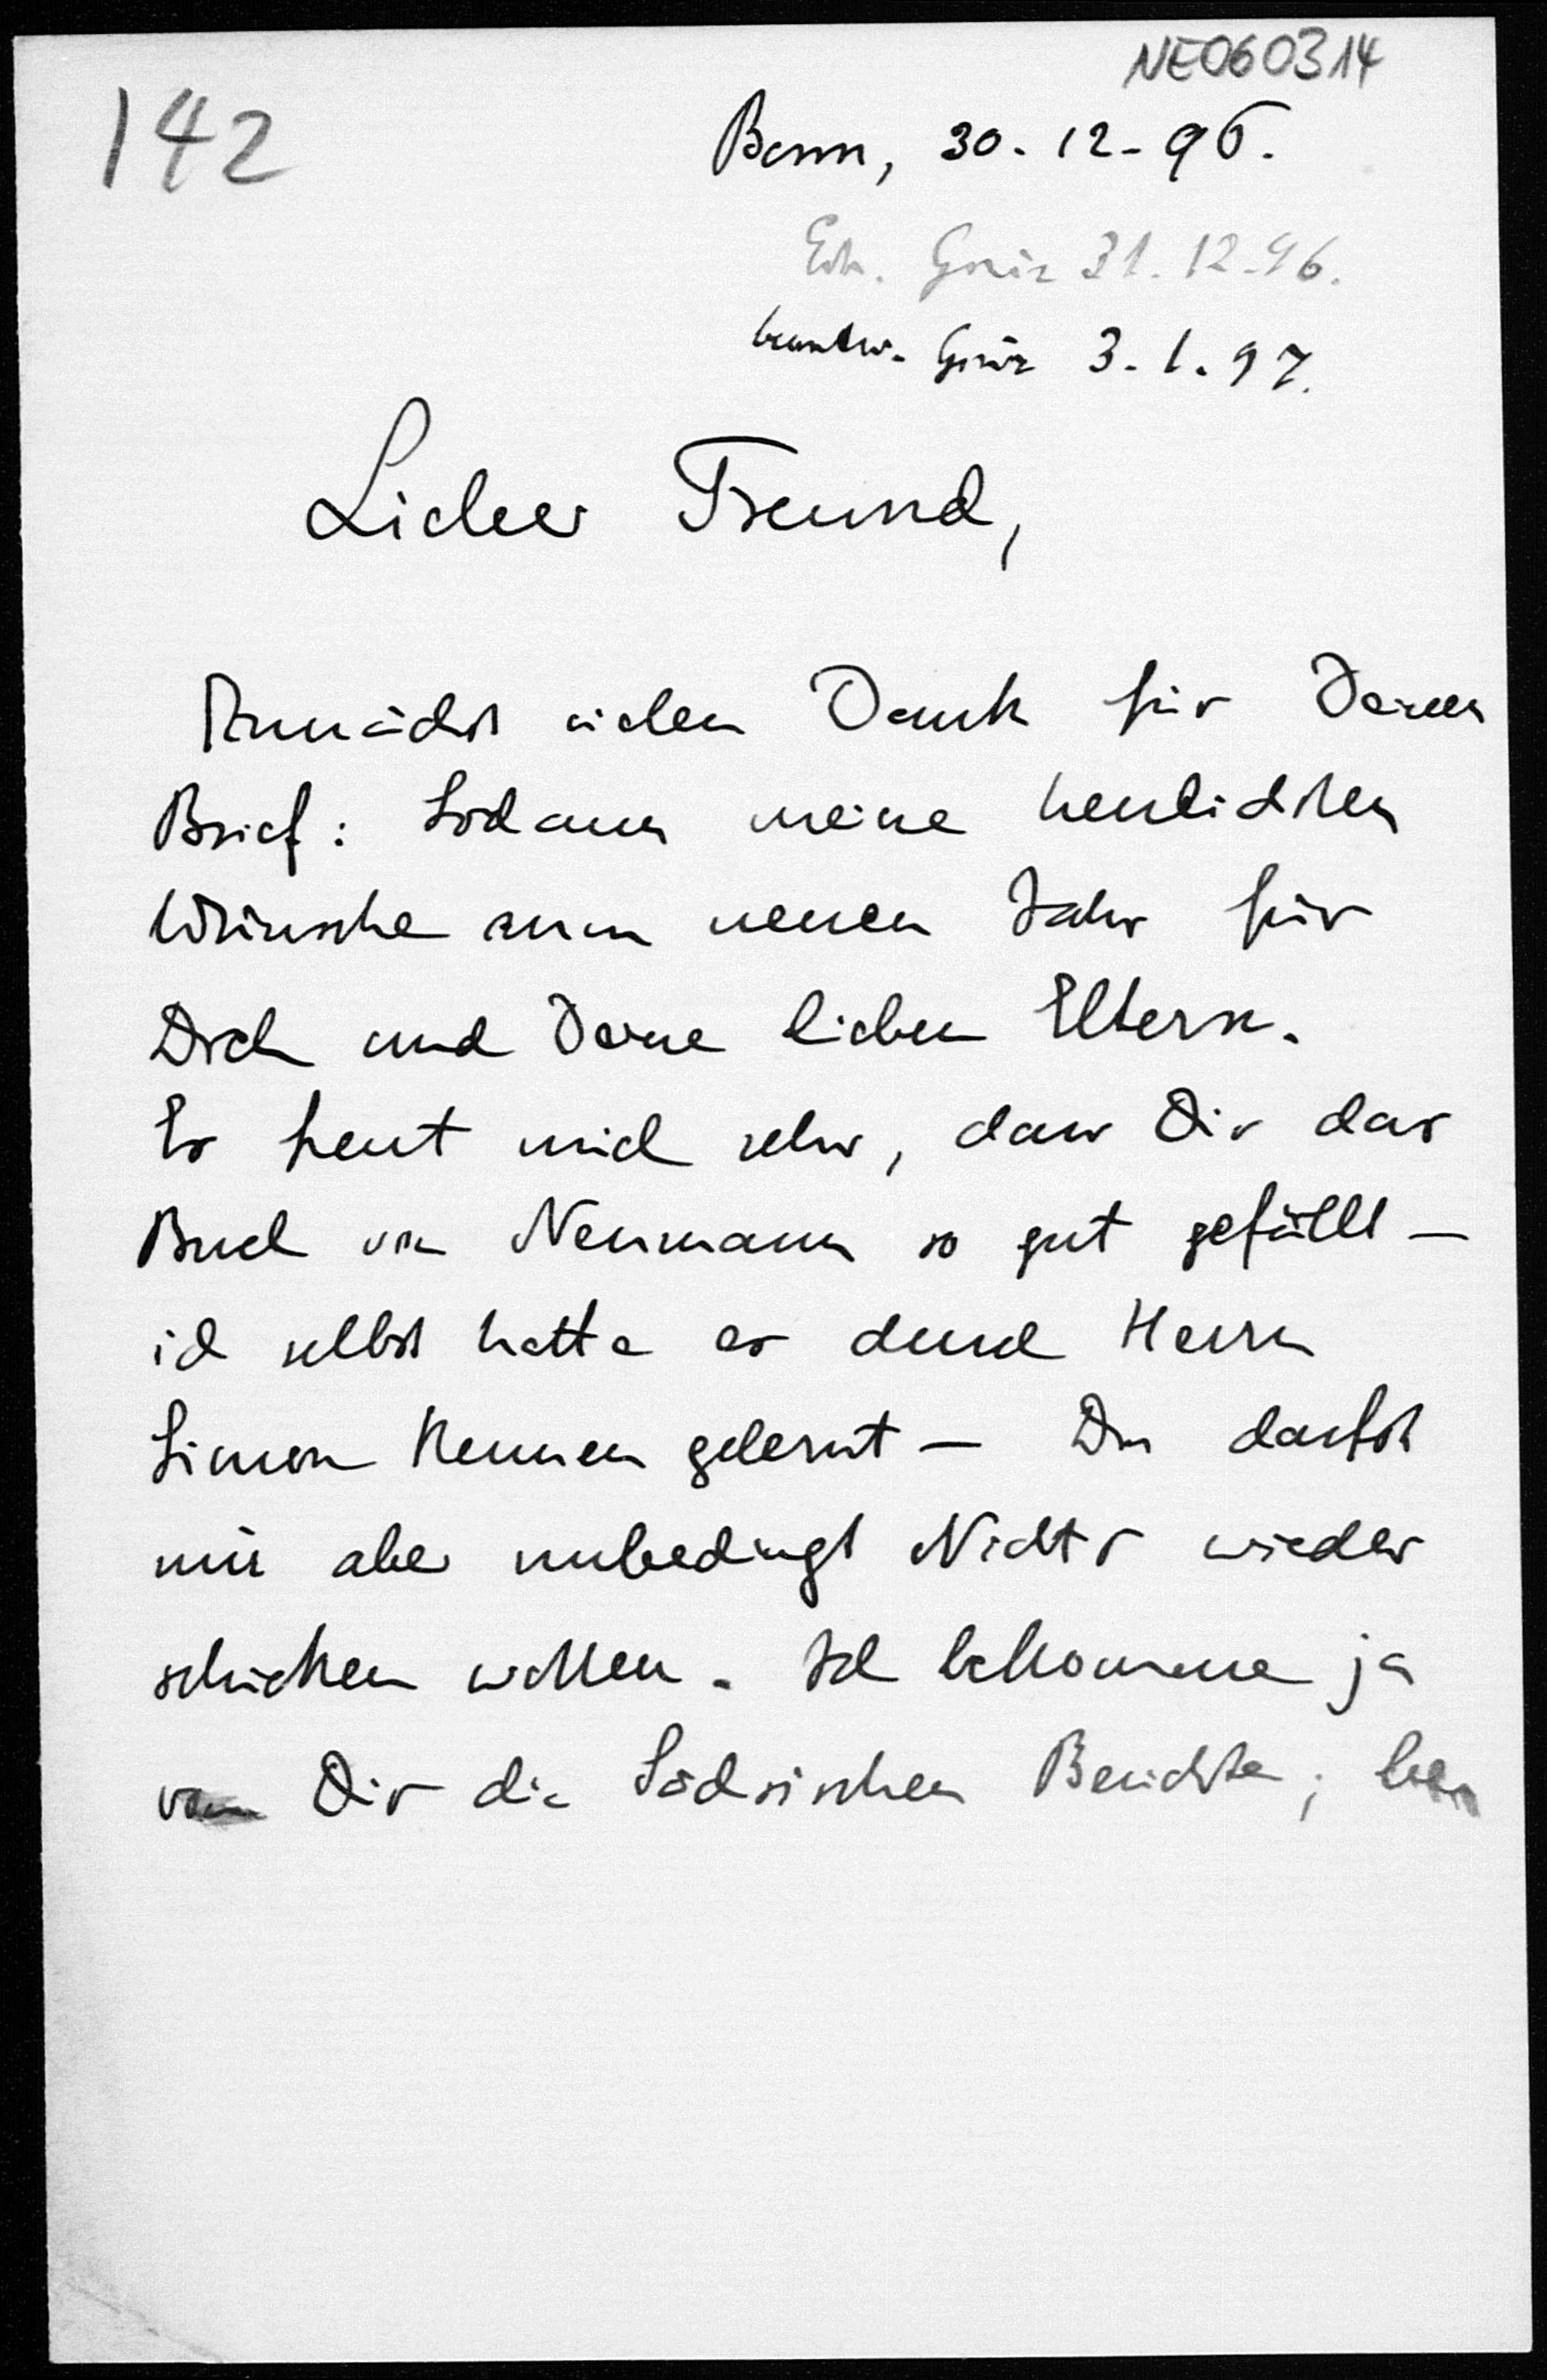 NE060314
142
Bonn, 30. 12. 96.
Erh. Greiz 31. 12. 96.
beantw. Greiz 3. 1. 97.
Lieber Freund,
Zunächst vielen Dank für Deinen
Brief: Sodann meine herzlichsten
Wünsche zum neuen Jahr für
Dich und Deine lieben Eltern.
Es freut mich sehr, dass Dir das
Buch von Neumann so gut gefällt –
ich selbst hatte es durch Herrn
Simon kennen gelernt – Du darfst
mir aber unbedingt Nichts wieder
schicken wollen. Ich bekomme ja
von Dir die Sächsischen Berichte;